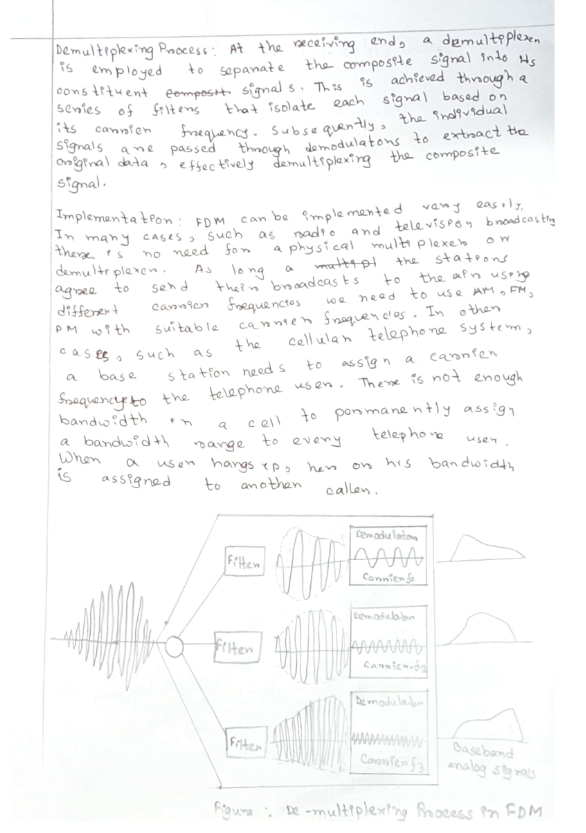 Demultiplexing Process: At the receiving end, a demultiplexer
is employed to separate the composite signal into its
constituent composit signals. This is achieved through a
series of filters that isolate each signal based on
its carrier frequency. Subsequently, the individual
signals are passed through demodulators to extract the
original data, effectively demultiplexing the composite
signal.
Implementation: FDM can be implemented very easily.
In many cases, such as radio and television broadcasting
there is no need for a physical multiplexer or
demultiplexer. As long a multipl the stations
agree to send their broadcasts to the air using
different carrier frequencies we need to use AM, FM,
PM with suitable carrier frequencies. In other
cases, such as the cellular telephone system,
a base station needs to assign a carrier
frequency to the telephone user. There is not enough
bandwidth in a cell to permanently assign
a bandwidth range to every telephone user.
When a user hangs up, her or his bandwidth
is assigned to another caller.
Filter
Demodulator
Carrier f1
Filter
Demodulator
Carrier f2
Filter
Demodulator
Carrier f3
Baseband
analog signals
Figure: De-multiplexing Process in FDM